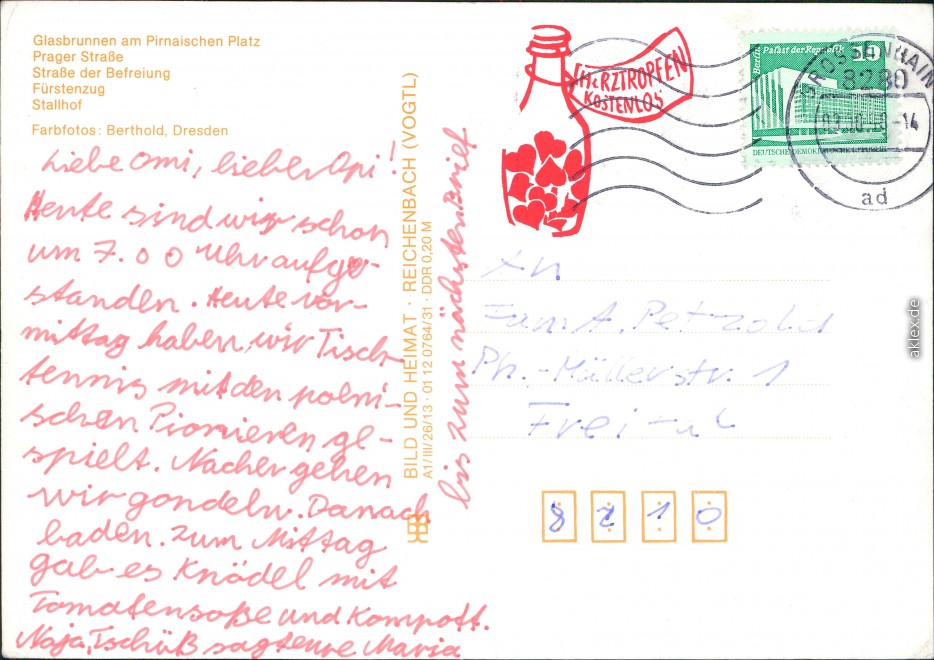 Glasbrunnen am Pirnaischen Platz
Prager Straße
Straße der Befreiung
Fürstenzug
Stallhof
Farbfotos: Berthold, Dresden
Liebe Omi, lieber Opi!
Heute sind wir schon
um 7.00 Uhr aufge-
standen. Heute vor-
mittag haben wir Tisch-
tennis mit den polni-
schen Pionieren ge-
spielt. Nacher gehen
wir gondeln. Danach
baden. Zum Mittag
gab es Knödel mit
Tomatensoße und Kompott.
Naja, Tschüß sagt eure Maria
bis zum nächsten Brief
BILD UND HEIMAT · REICHENBACH (VOGTL)
A1/III/26/13 · 01 12 0764/31 · DDR 0,20 M
HERZTROPFEN
KOSTENLOS
Berlin, Palast der Republik
10
DEUTSCHE DEMOKRATISCHE REPUBLIK
GROSSENHAIN
8280
-14
ad
An
Fam. A. Petzold
Ph.-Müllerstr. 1
Freital
8210
aklex.de